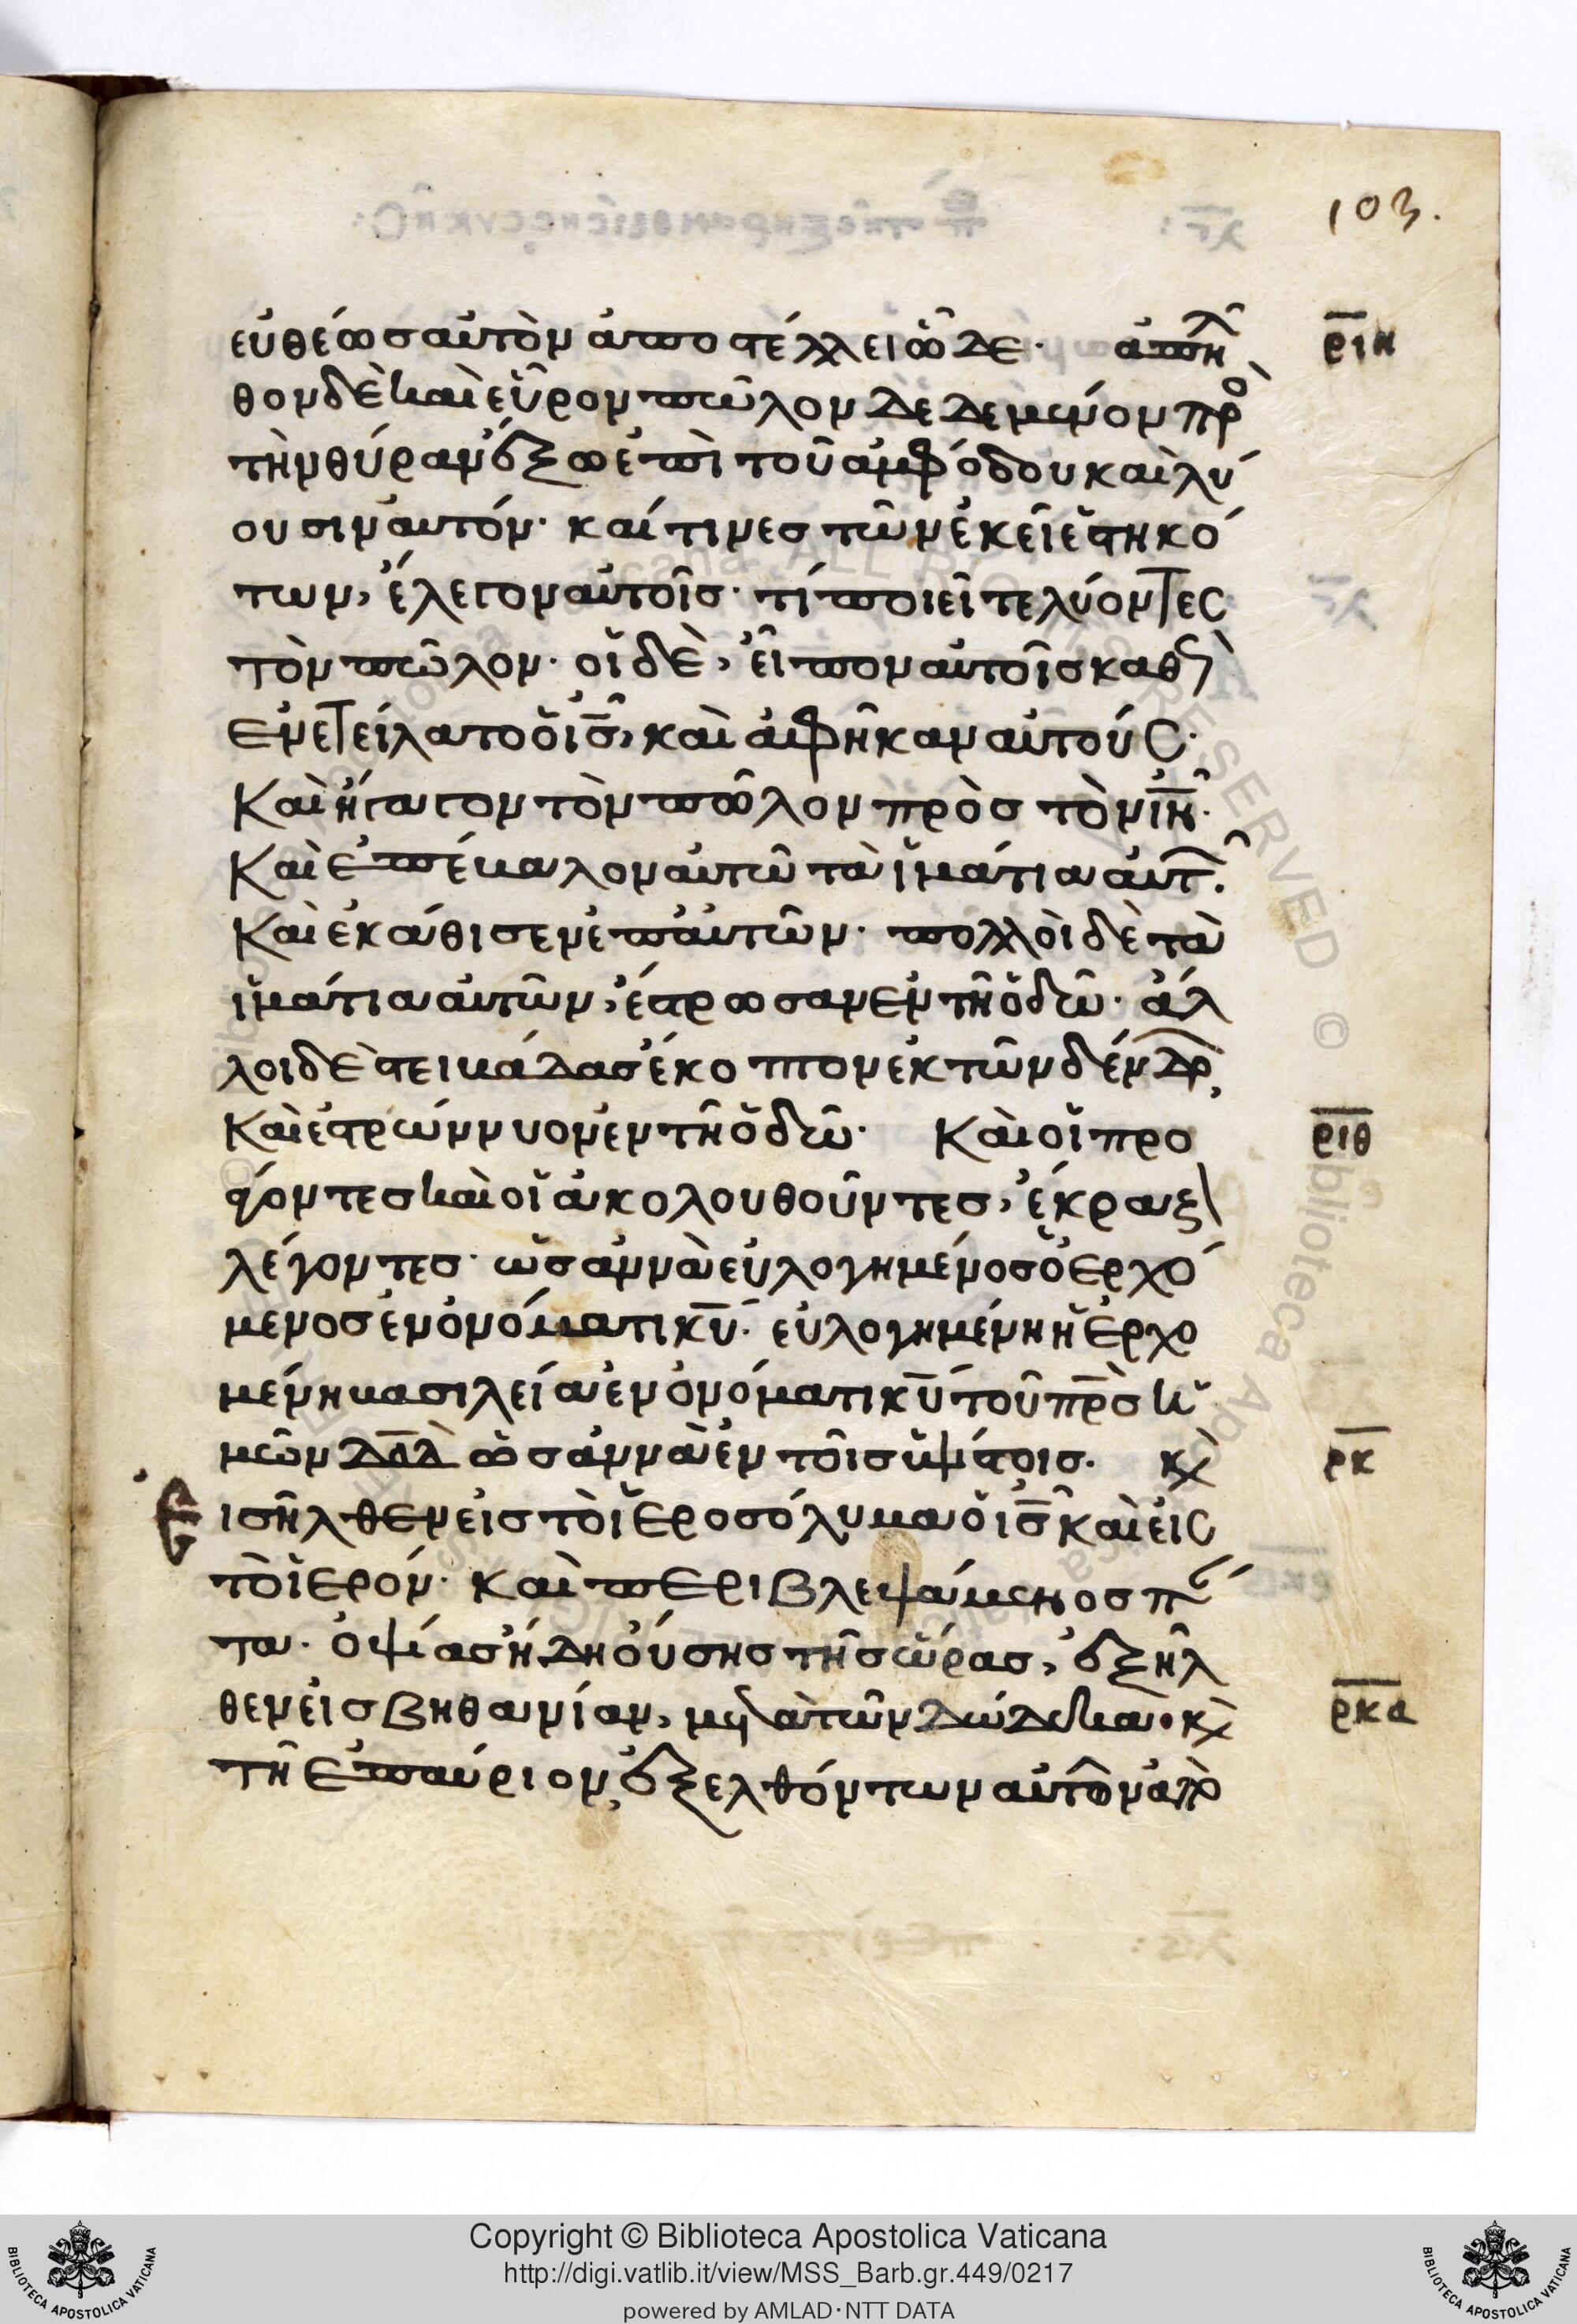 103.
εὐθέωσ αὐτὸν ἀποστέλλει ὧδε· ἀπῆλ
ριη
θον δὲ καὶ εὗρον πῶλον δεδεμένον πρὸ
τὴν θύραν ἔξω ἐπὶ τοῦ ἀμφόδου καὶ λύ
ουσιν αὐτόν· καί τινεσ τῶν ἐκεῖ ἑστηκό
των, ἔλεγον αὐτοῖσ· τί ποιεῖτε λύοντες
τὸν πῶλον· οἱ δὲ, εἶπον αὐτοῖσ καθὼ
ἐνετείλατο ὁ ις̅, καὶ ἀφῆκαν αὐτούς·
Καὶ ἤγαγον τὸν πῶλον πρὸσ τὸν ιν̅·
Καὶ ἐπέβαλον αὐτῶ τὰ ἱμάτια αὐτ·
Καὶ ἐκάθισεν ἐπ' αὐτῶν· πολλοὶ δὲ τὰ
ἱμάτια αὐτῶν, ἔστρωσαν ἐν τῆ ὁδῶ· ἄλ
λοι δὲ στειβάδασ ἔκοπτον ἐκ τῶν δένδρ,
Καὶ ἐστρώννυον ἐν τῆ ὁδῶ· Καὶ οἱ προ
ριθ
άγοντεσ καὶ οἱ ἀκολουθοῦντεσ, ἔκραζ
λέγοντεσ· ὡσαννὰ εὐλογημένοσ ὁ ἐρχό
μενοσ ἐν ὀνόματι κυ̅· εὐλογημένη ἡ ἐρχο
μένη βασιλεία ἐν ὀνόματι κυ̅ τοῦ πρ̅σ ἡ
μῶν δα̅δ ὡσαννὰ ἐν τοῖσ ὑψίστοισ. κὶ
ρκ
Εἰσῆλθεν εἰσ τὸ ἱεροσόλυμα ὁ ις̅ καὶ εἰς
τὸ ἱερόν· καὶ περιβλεψάμενοσ πά
τα· ὀψίασ ἤδη οὔσησ τῆσ ὥρασ, ἐξῆλ
θεν εἰσ βηθανίαν, μετὰ τῶν δώδεκα· κὶ
ρκα
τῆ ἐπαύριον, ἐξελθόντων αὐτῶν ἀπὸ
Copyright © Biblioteca Apostolica Vaticana
http://digi.vatlib.it/view/MSS_Barb.gr.449/0217
powered by AMLAD·NTT DATA
BIBLIOTECA APOSTOLICA VATICANA
BIBLIOTECA APOSTOLICA VATICANA